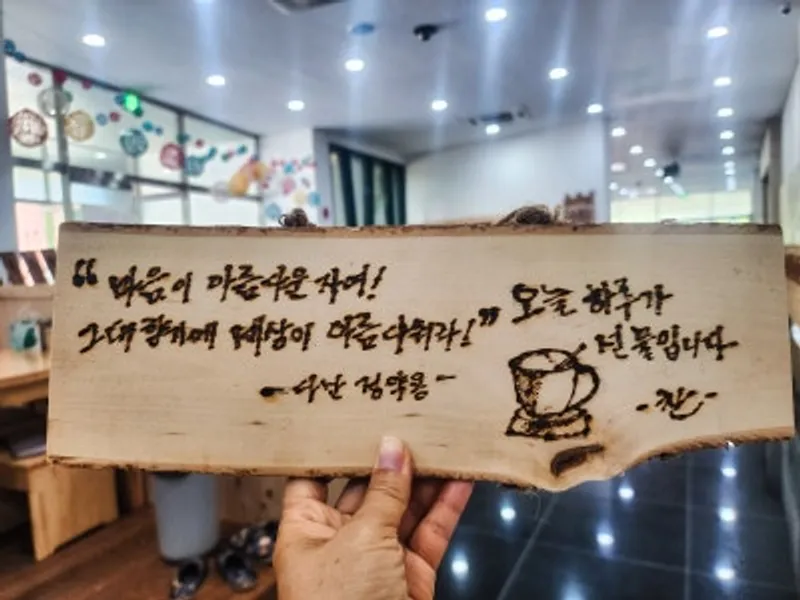 “마음이 아름다운 자여!
그대 향기에 세상이 아름다워라!”
- 다산 정약용 -
오늘 하루가
선물입니다
-찬-